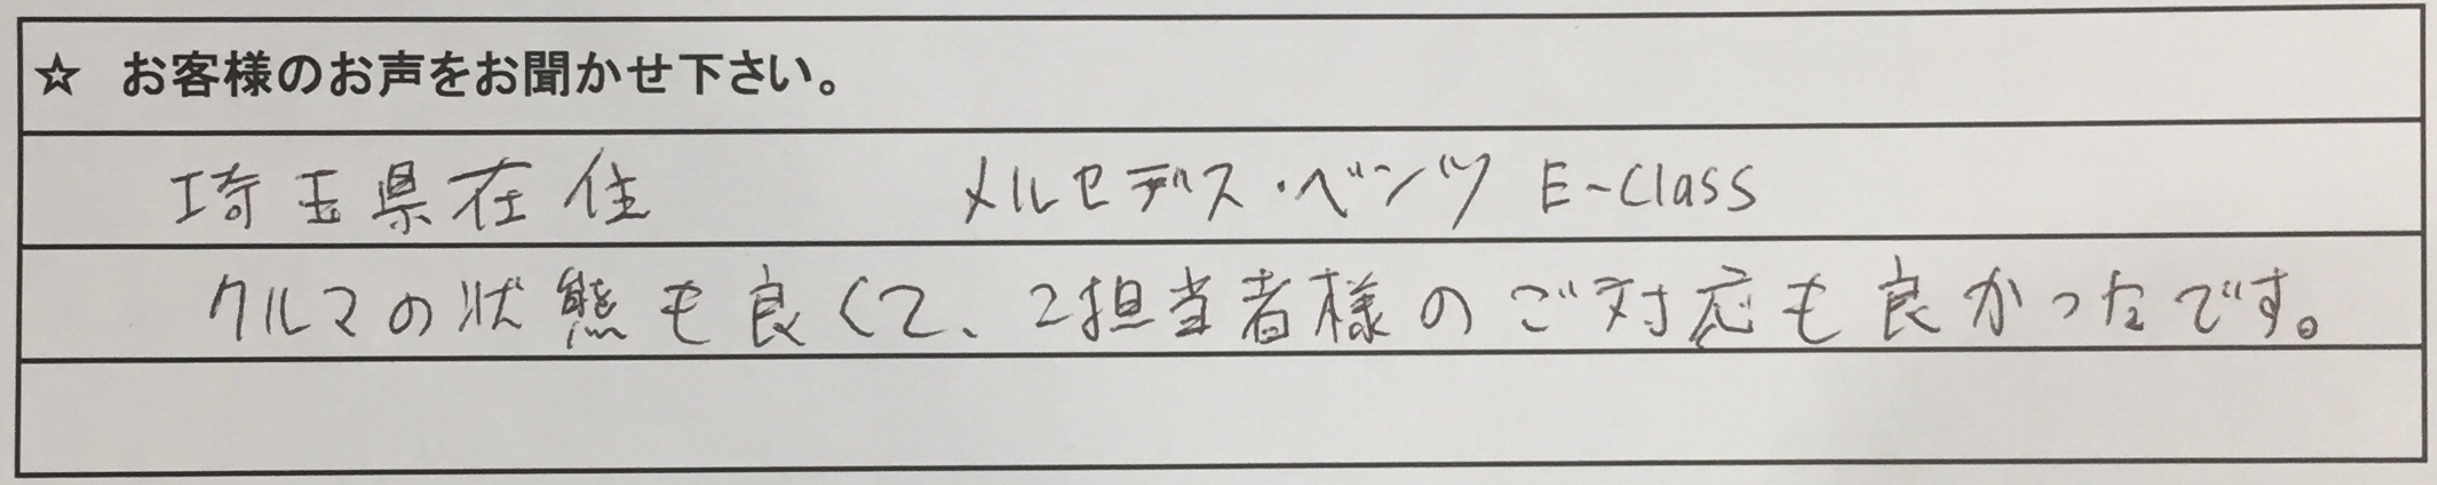 ☆ お客様のお声をお聞かせ下さい。
埼玉県在住 メルセデス・ベンツ E-Class
クルマの状態も良くて、ご担当者様のご対応も良かったです。